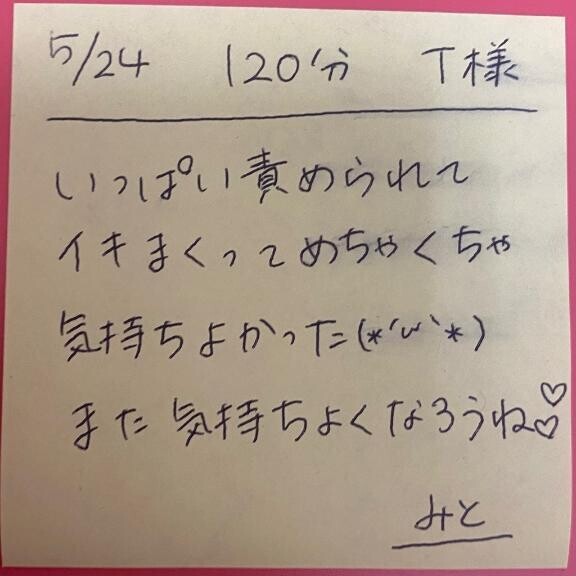 5/24 120分 T様
いっぱい責められて
イキまくってめちゃくちゃ
気持ちよかった(*´ω`*)
また気持ちよくなろうね♡♡
みと